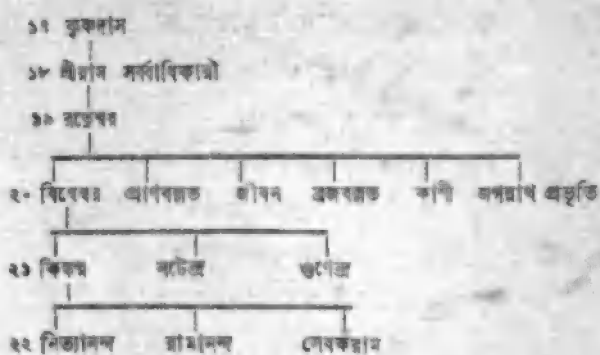 ১৭ কৃষ্ণদাস
১৮ শ্রীরাম সর্ব্বাধিকারী
১৯ রত্নেশ্বর
২০ বিশ্বেশ্বর প্রাণবল্লভ জীবন ব্রজবল্লভ কাশী জগন্নাথ প্রভৃতি
২১ কিঙ্কর নটেন্দ্র গুণেন্দ্র
২২ নিত্যানন্দ রামানন্দ সেবকরাম